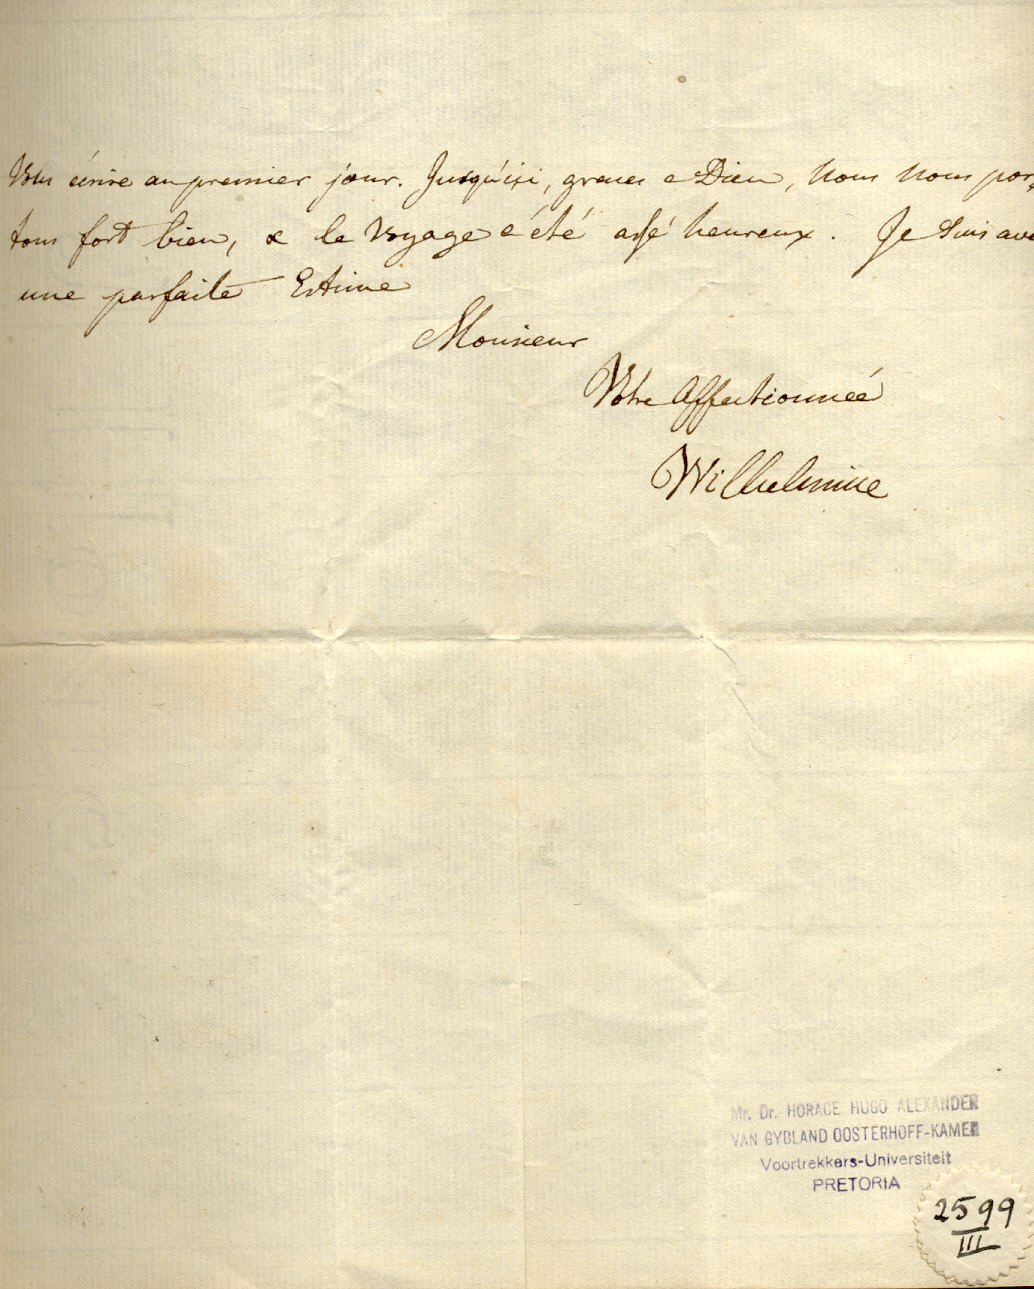 Vous écrire au premier jour. Jusqu'ici, graces a Dieu, Nous Nous por,
tons fort bien, & le Voyage a été assé heureux. Je Suis avec
une parfaite Estime
Monsieur
Votre Affectionnée
Wilhelmine
Mr. Dr. HORACE HUGO ALEXANDER
VAN GYBLAND OOSTERHOFF-KAMER
Voortrekkers-Universiteit
PRETORIA
2599
III